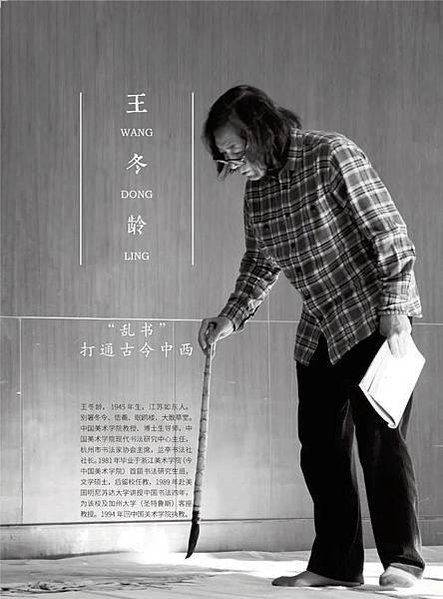 王
WANG
冬
DONG
龄
LING
“乱书”
打通古今中西
王冬龄, 1945 年生, 江苏如东人。
别署冬今、悟斋、眠鸥楼、大散草堂。
中国美术学院教授、博士生导师, 中
国美术学院现代书法研究中心主任,
杭州市书法家协会主席, 兰亭书法社
社长。1981 年毕业于浙江美术学院 (今
中国美术学院) 首届书法研究生班,
文学硕士, 后留校任教。1989 年赴美
国明尼苏达大学讲授中国书法四年,
为该校及加州大学 (圣特鲁斯) 客座
教授。1994 年回中国美术学院执教。